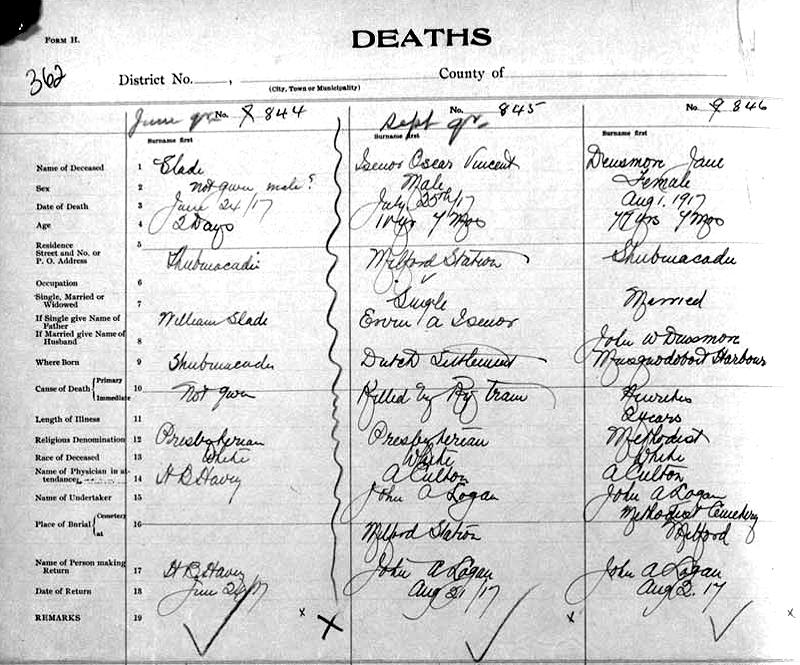 FORM H.
DEATHS
362
District No. , (City, Town or Municipality) County of
June qr. No. 9 844
Sept qr. No. 845
No. 9 846
Surname first Surname first Surname first
Name of Deceased 1 Slade Isenor Oscar Vincent Densmon Jane
Sex 2 Not given male? Male Female
Date of Death 3 June 24/17 July 25th/17 Aug 1. 1917
Age 4 2 Days 11 yrs 4 Mos 77 yrs 4 Mos
Residence 5
Street and No. or
P. O. Address Shubenacadie Milford Station Shubenacadie
Occupation 6
Single, Married or
Widowed 7 Single Married
If Single give Name of
Father William Slade Ervin A Isenor
If Married give Name of
Husband 8 John W Densmon
Where Born 9 Shubenacadie Dutch Settlement Musquodoboit Harbour
Cause of Death { Primary
Immediate 10 Not given Killed by Ry Train
Length of Illness 11 2 years
Religious Denomination 12 Presbyterian Presbyterian Methodist
Race of Deceased 13 White White White
Name of Physician in at-
tendance 14 H B Havey A Culton A Culton
Name of Undertaker 15 John A Logan John A Logan
Place of Burial { Cemetery
at 16 Milford Station Methodist Cemetery
Milford
Name of Person making
Return 17 H B Havey John A Logan John A Logan
Date of Return 18 June 24/17 Aug 21/17 Aug 2. 17
REMARKS 19 x X x x